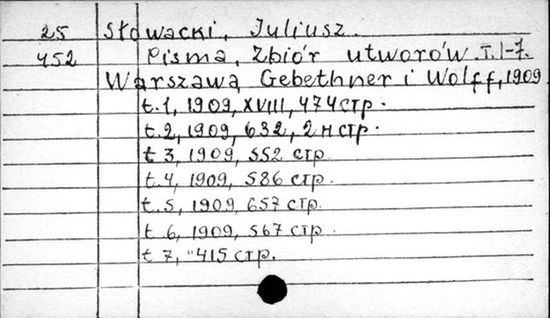 25 Słowacki, Juliusz.
452 Pisma, Zbiór utworów. T. 1-7.
Warszawa, Gebethner i Wolff, 1909
t. 1, 1909, XVIII, 474 стр.
t. 2, 1909, 632, 2 н стр.
t 3, 1909, 552 стр.
t. 4, 1909, 586 стр.
t. 5, 1909, 657 стр.
t. 6, 1909, 567 стр.
t 7, " 415 стр.